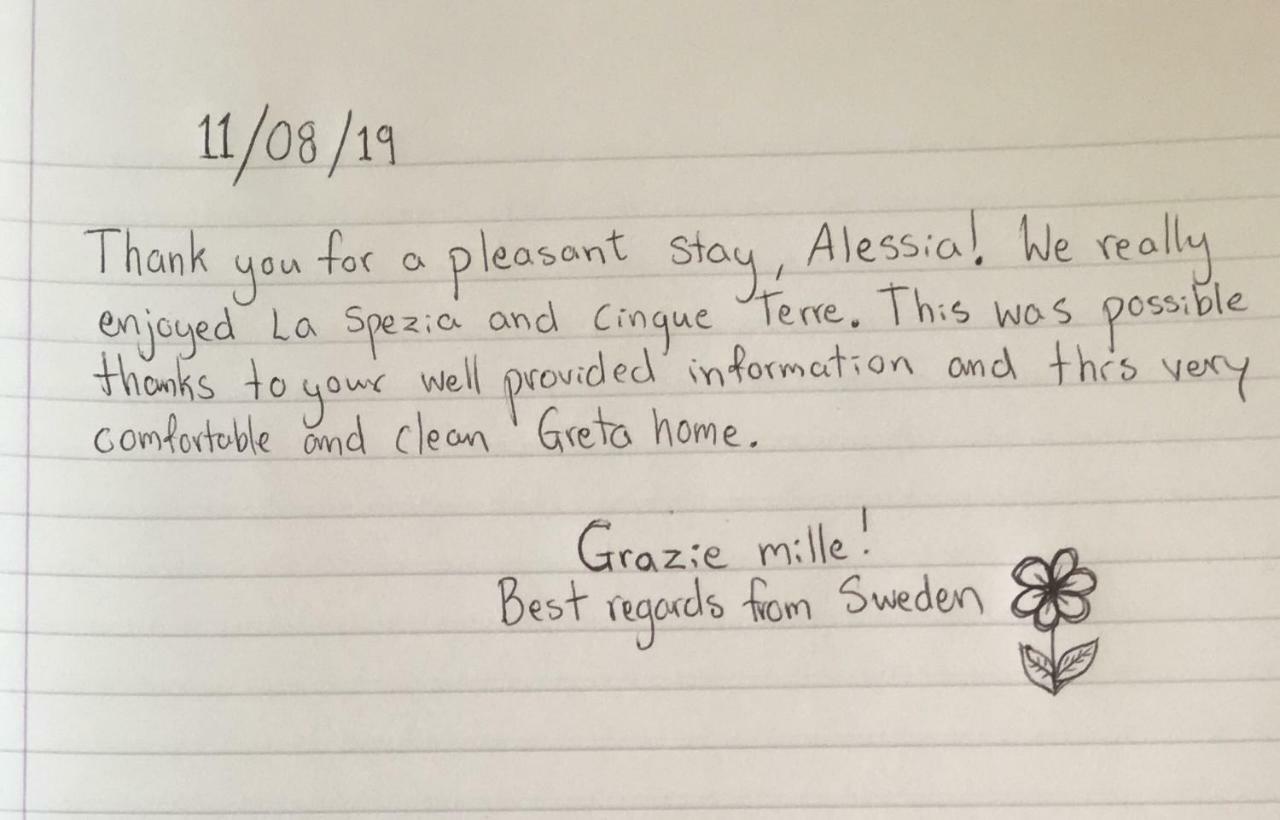 11/08/19
Thank you for a pleasant stay, Alessia! We really
enjoyed La Spezia and Cinque Terre. This was possible
thanks to your well provided information and this very
comfortable and clean Greta home.
Grazie mille!
Best regards from Sweden